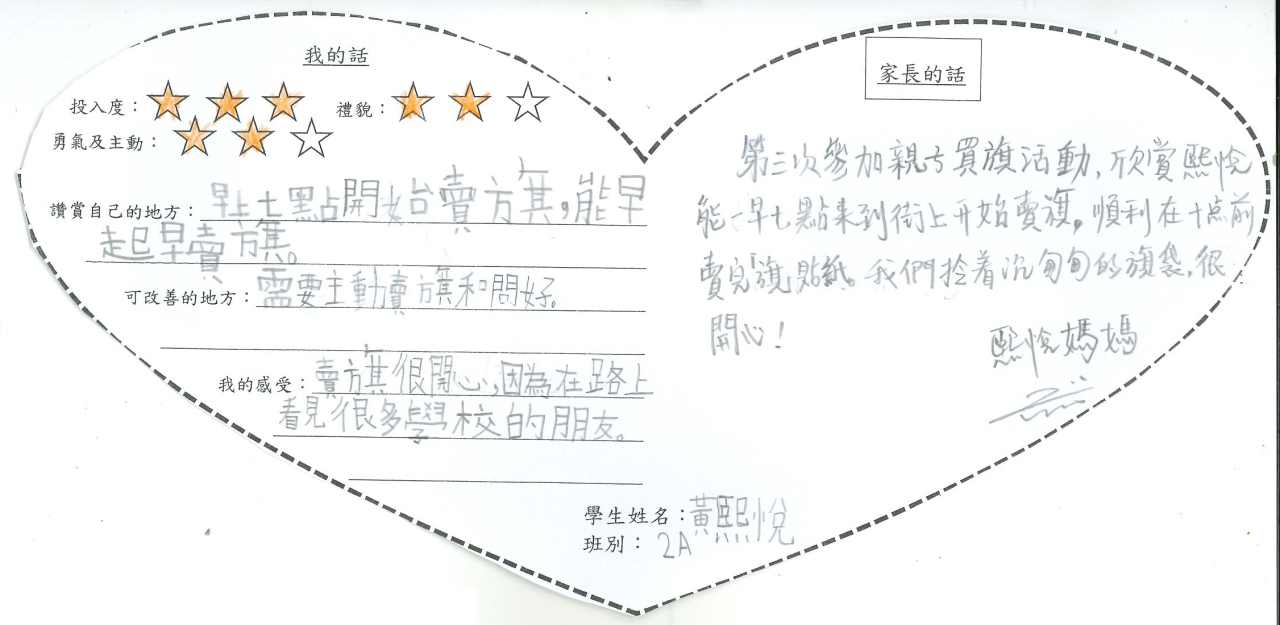 我的話
投入度：☆☆☆ 禮貌：☆☆☆
勇氣及主動：☆☆☆
讚賞自己的地方：早上七點開始賣旗，能早
起早賣旗。
可改善的地方：需要主動賣旗和問好。
我的感受：賣旗很開心，因為在路上
看見很多學校的朋友。
家長的話
第三次參加親子買旗活動，欣賞熙悅
能一早七點來到街上開始賣旗。順利在十点前
賣完旗貼紙。我們拎着沉甸甸的旗袋，很
開心！
熙悅媽媽
學生姓名：黃熙悅
班別：2A